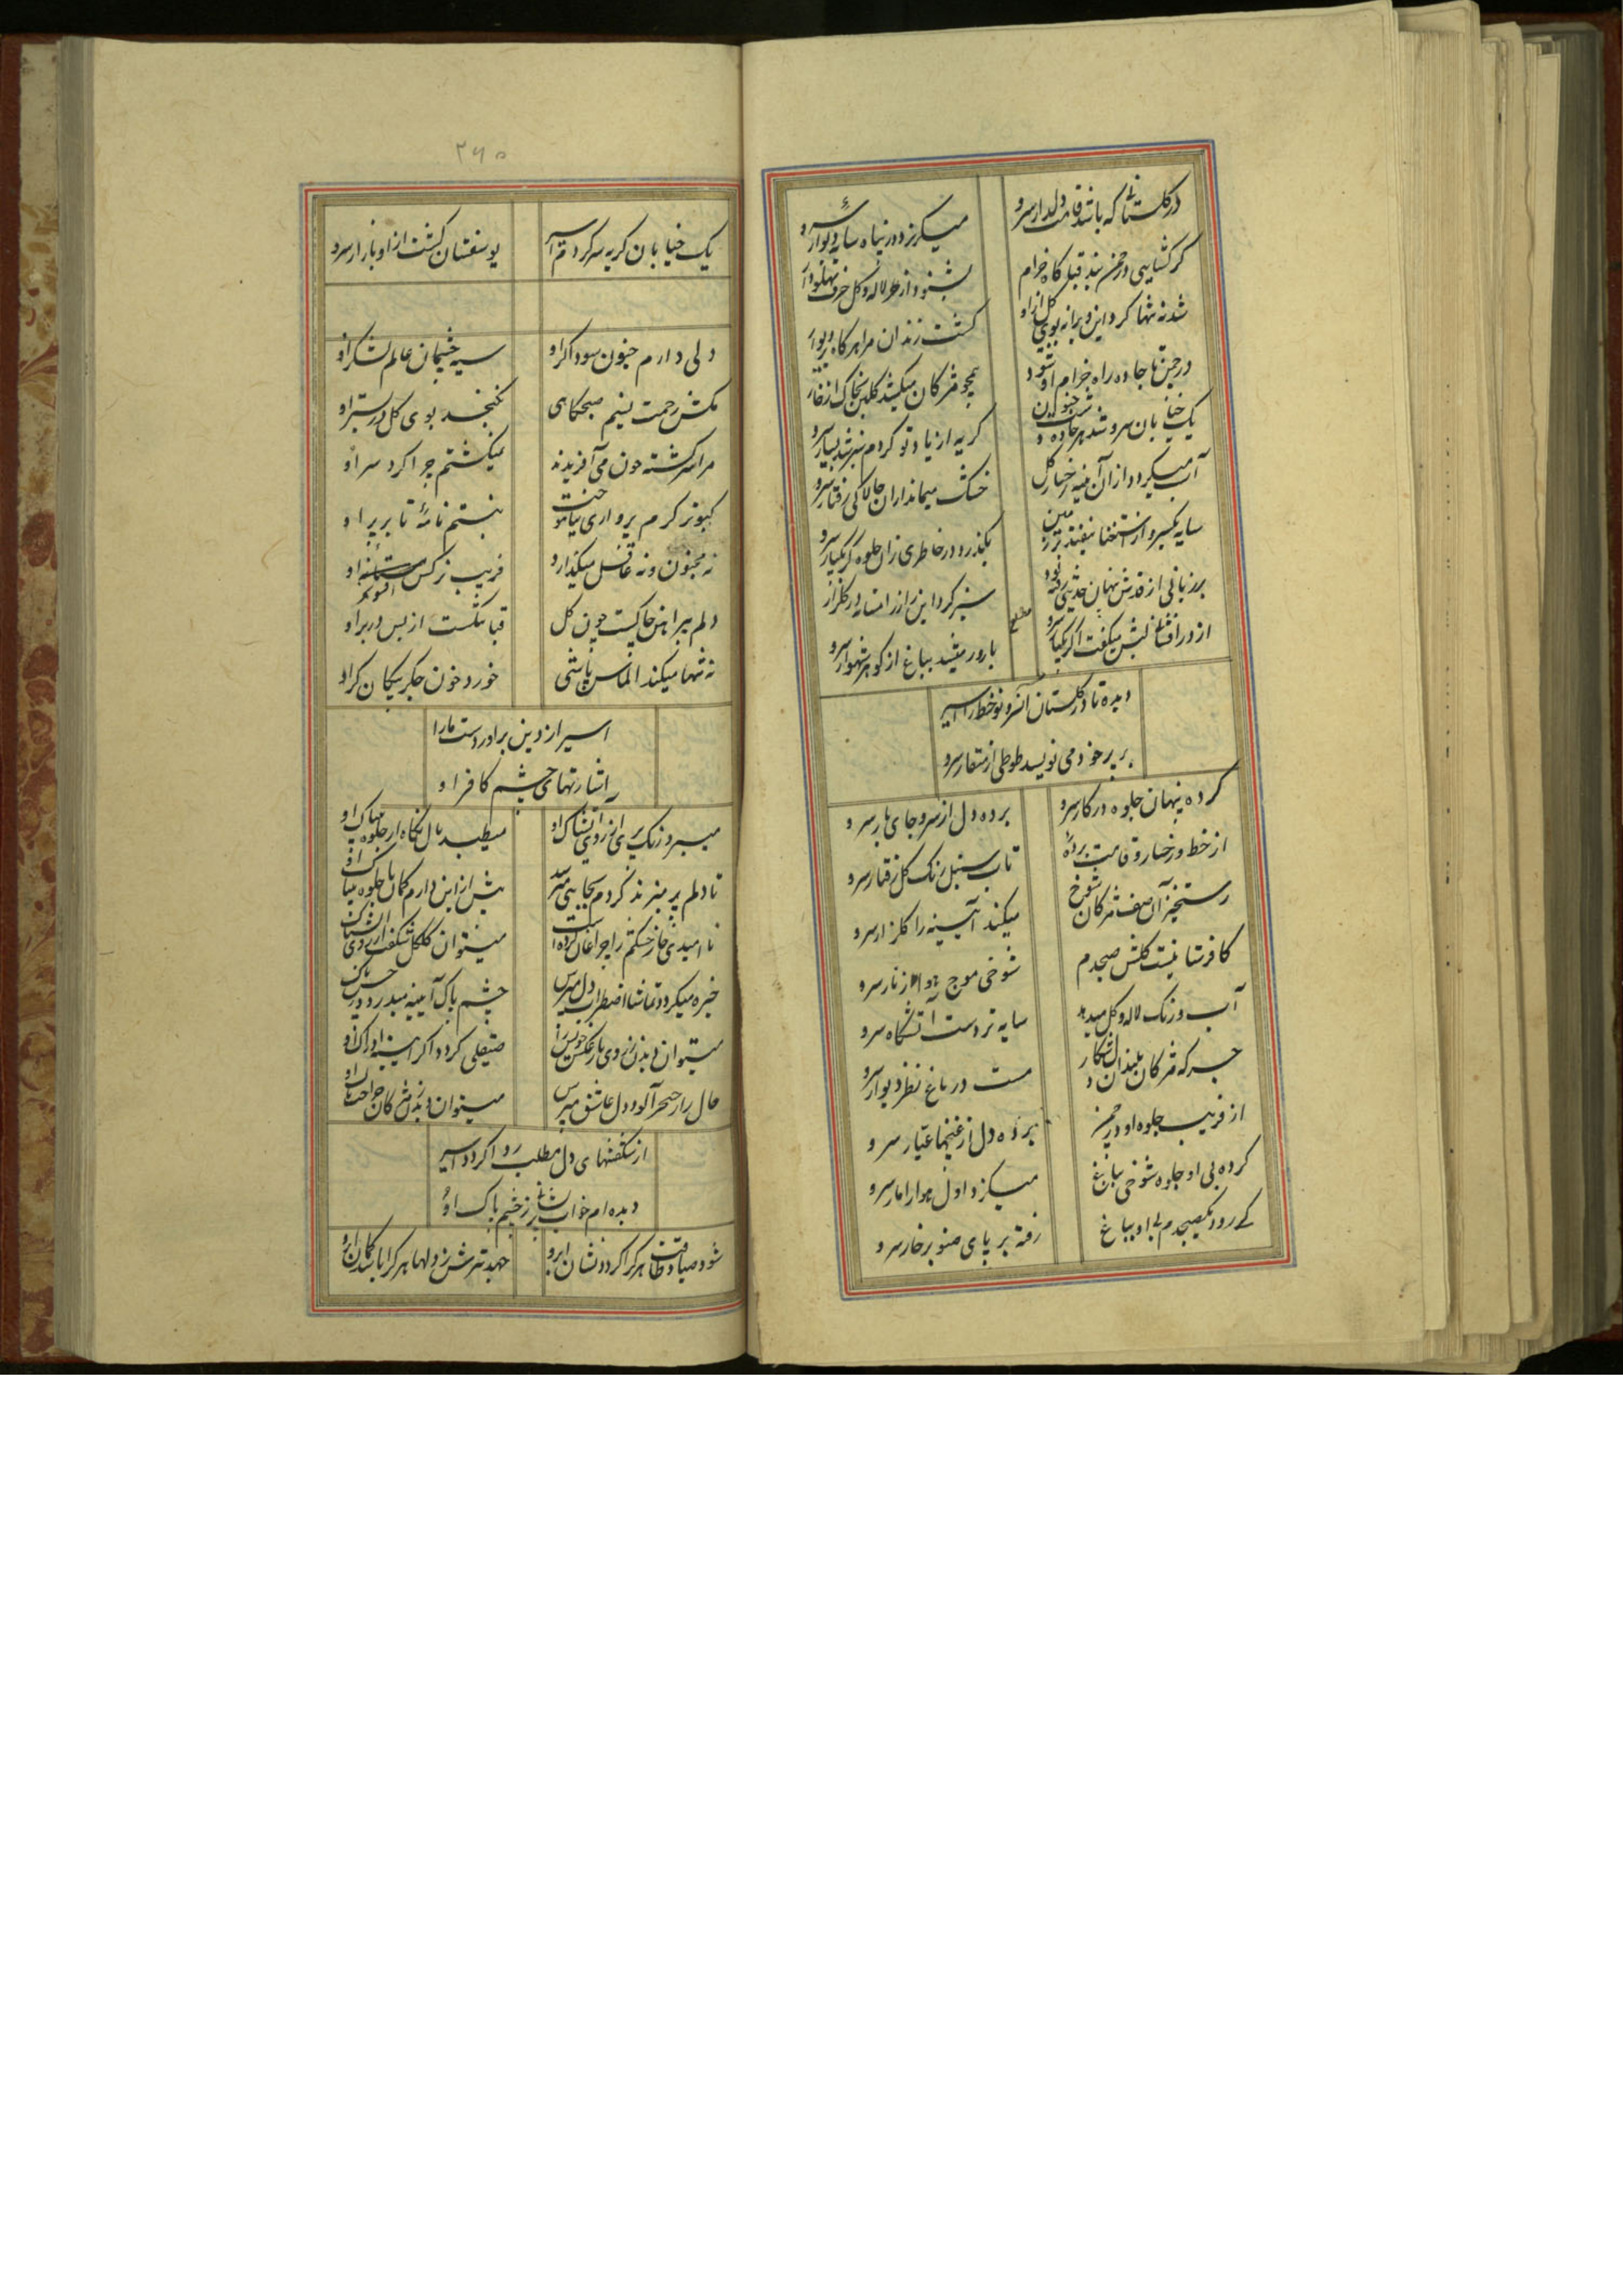 در گلستانی که باشد قامت دلدار سرو
میگریزد در پناه سایه دیوار سرو
گر گشایی در چمن بند قبا گاه خرام
بشنود از هر لاله و گل حرف
شد نه تنها گرد این ویرانه بوی گل از او
گشت زندان مرا هر گاه دیوار
در چمن تا جاده راه خرام او شود
همچو مژگان میکشد گلبن بخاک از خار
یک خیابان سرو شد هر جاده
گریه از یاد تو کردم سبز شد بسیار سرو
آب میگردد از آن آیینه رخسار گل
خشک میماند از آن چالاکی رفتار سرو
سایه یکسر و از استغنا نیفتد بر زمین
بگذرد در خاطری زان جلوه گر یکبار سرو
بر زبانی از قدش پنهان حدیثی رفته بود
سبز کرد این راز را افسانه در گلزار
مطلع
از در افشان لبش میگفت اگر یکبار سرو
بارور میشد بباغ از گوهر شهوار سرو
دیده تا در گلستان آن سرو نوخط را اسیر
بر پر خود می نویسد طوطی از منقار سرو
کرده پنهان جلوه در کار سرو
برده دل از سرو جای بار سرو
از خط و رخسار و قامت برده
تاب سنبل رنگ گل رفتار سرو
رستخیز آن صف مژگان شوخ
میکند آیینه را گلزار سرو
کافرستانیست گلشن صبحدم
شوخی موج هوا زنار سرو
آب و رنگ لاله و گل میدهد
سایه تردست آتشگاه سرو
جرگه مژگان بلندان شکار
مست در باغ نظر دیوار سرو
از فریب جلوه او در چمن
برده دل از غنچها عیار سرو
کرده بی او جلوه شوخی بباغ
میگزد اول هوا را مار سرو
کی رود یکصبحدم بی او بباغ
رفته بر پای صنوبر خار سرو
۲۶۵
یک خیابان گریه سر کردم اسیر
یوسفستان گشت از او بازار سرو
دلی دارم جنون سوداگر او
سیه چشمان عالم لشکر او
مکش زحمت نسیم صبحگاهی
نگنجد بوی گل در بستر او
مرا سرگشته چون می آفریدند
نمیگشتم چرا گرد سر او
کبوتر گرم پروازی نیاموخت
نبستم نامهٔ تا بر پر او
نه مجنون و نه عاقل میگذارد
فریب نرگس افسونگر او
دلم پیراهن خاکیست چون گل
قبا بشکست از بس در بر او
نه تنها میکند الماس پاشی
خورد خون جگر پیکان گر او
اسیر از دین برآوردست ما را
اشارتهای چشم کافر او
میبرد رنگ پری از روی آتشناک او
میطپد بال نگاه از جلوه بیباک او
پیش از این دارم گمان با جلوه بیباک او
نا امیدی خار خشکم را چراغان کرده است
میتوان گلگل شگفت از روی
خیره میگردد تماشا اضطراب دل مپرس
چشم پاک آیینه میدزدد
میتوان دیدن ز روی یار عکس خویش را
صیقلی گردد اگر آیینه ادراک او
حال راز حیرت آلود دل عاشق مپرس
میتوان دیدن ز مژگان
از شگفتنهای دل مطلب روا گردد اسیر
دیده ام خواب پریشانی ز چشم پاک او
جهد تیرش ز دلها هر کرا باشد کمان ابرو